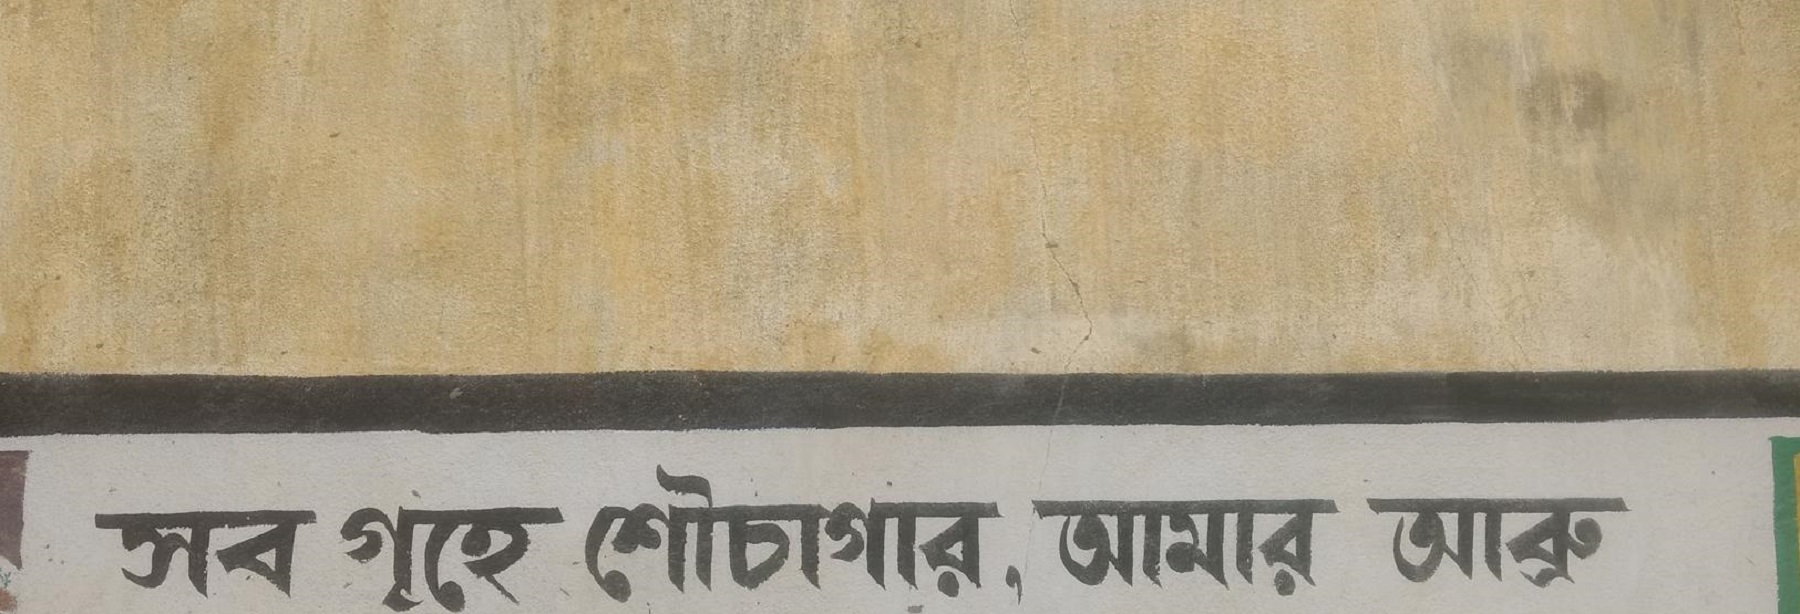 সব গৃহে শৌচাগার, আমার আব্রু